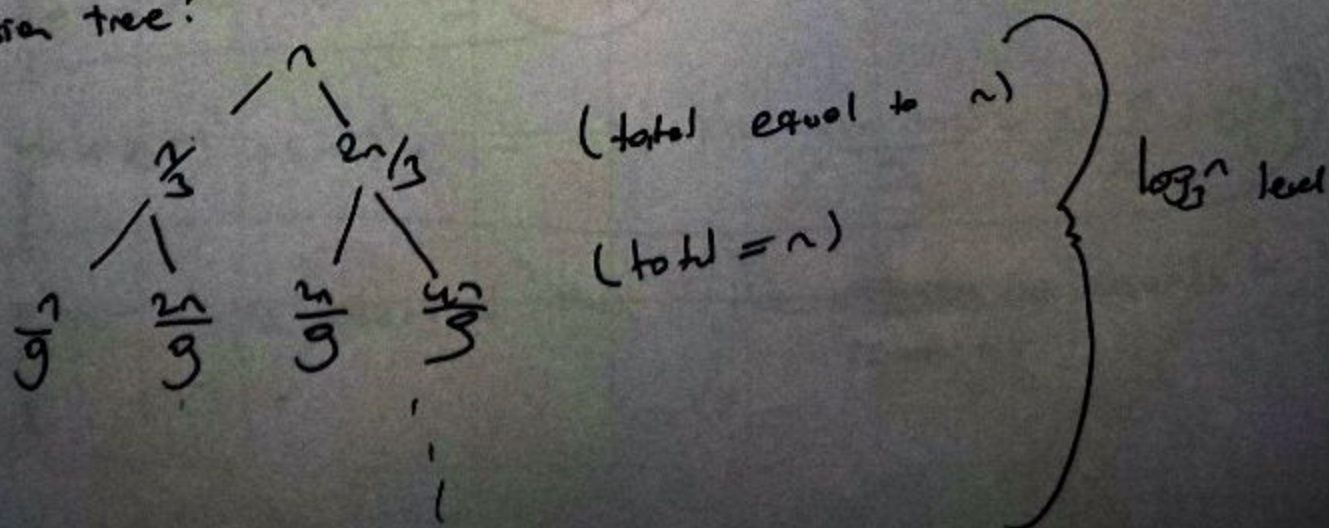 tree:
n
n/3 2n/3 (total equal to n)
n/9 2n/9 2n/9 4n/9 (total = n)
log₃n level